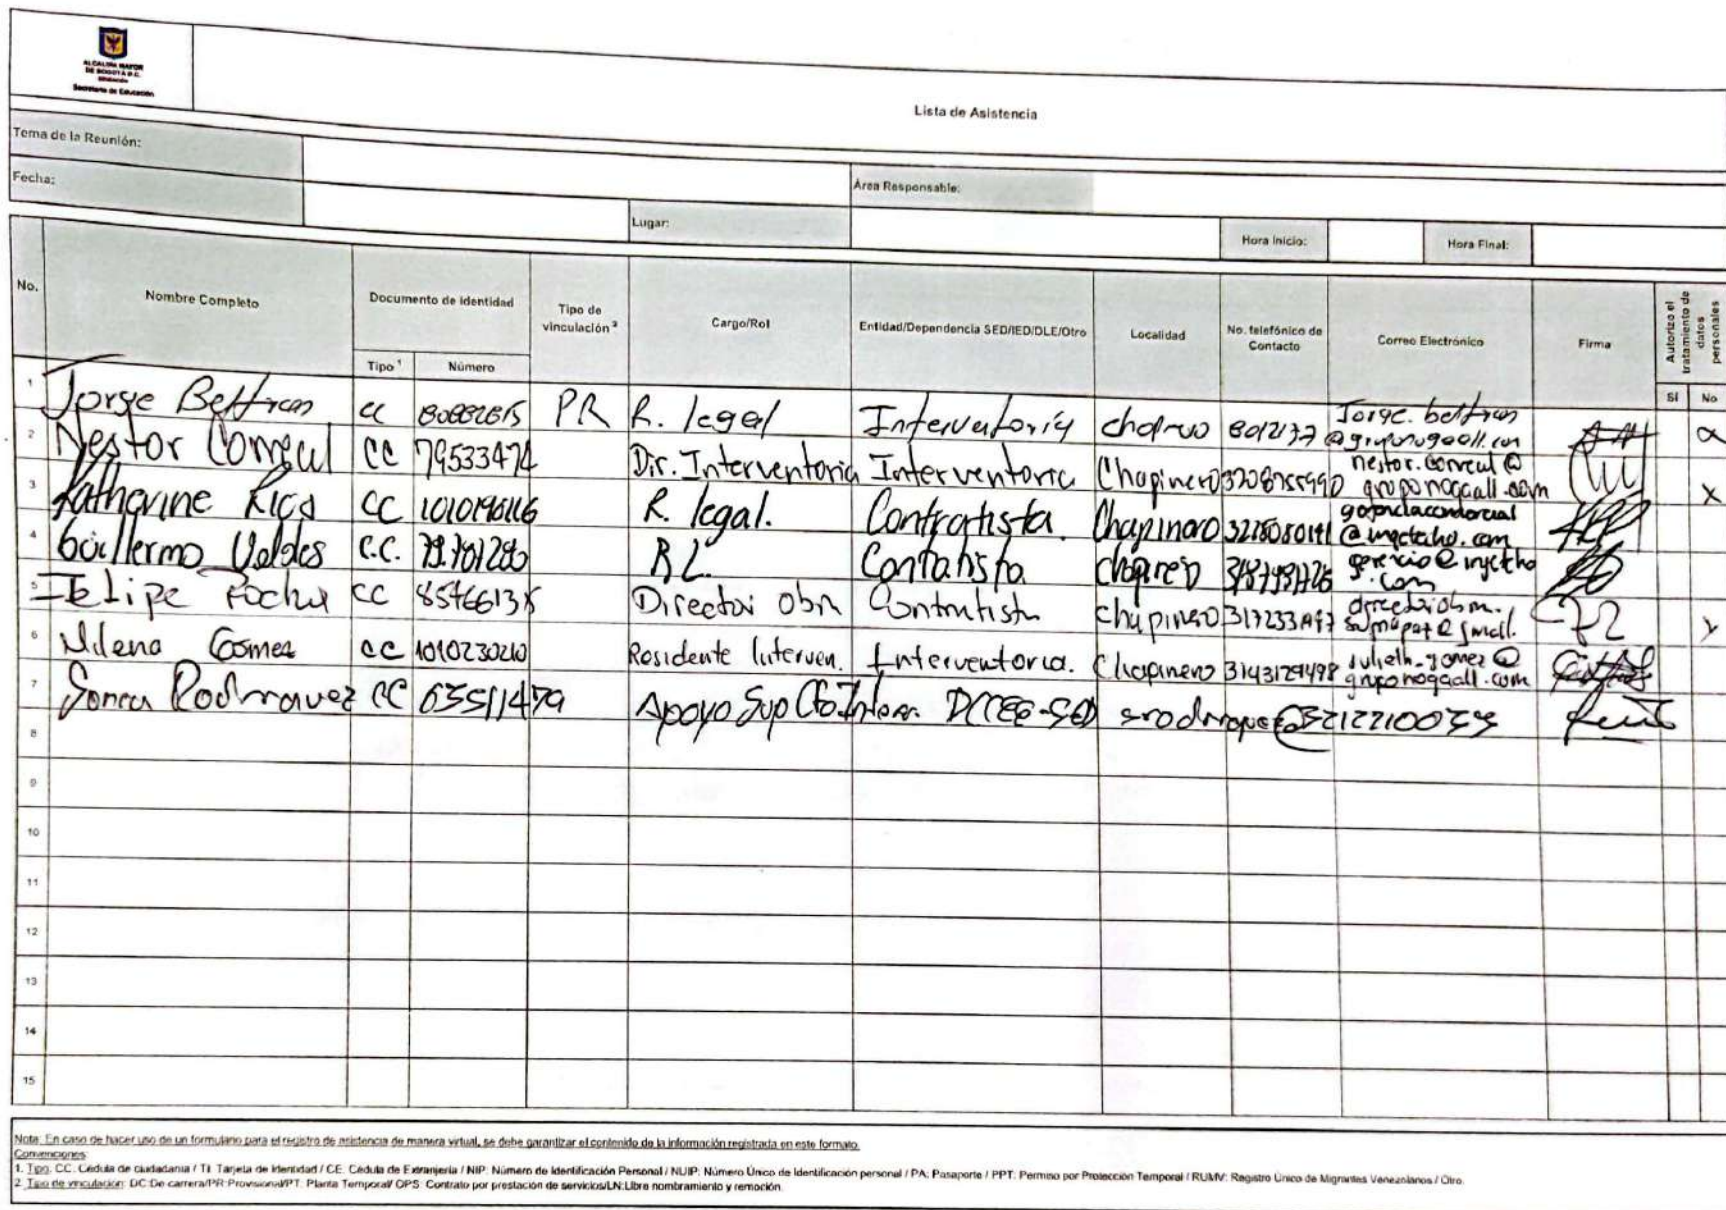 ALCALDÍA MAYOR
DE BOGOTÁ D.C.
Secretaría de Educación
Lista de Asistencia
Tema de la Reunión:
Fecha:
Área Responsable:
Lugar:
Hora Inicio:
Hora Final:
No.
Nombre Completo
Documento de identidad
Tipo ¹
Número
Tipo de
vinculación ²
Cargo/Rol
Entidad/Dependencia SED/IED/DLE/Otro
Localidad
No. telefónico de
Contacto
Correo Electrónico
Firma
Autorizo el
tratamiento de
datos
personales
SI No
1 Jorge Beltran CC PR R. legal Interventoria Jorge.beltran
2 Nestor CC 79533474 Dir. Interventoria Interventoria Chapinero 3208755990 nestor.correal@
gruponogaall.com X
3 Katherine CC 1010190116 R. legal. Contratista. Chapinero
4 Guillermo Valdes C.C. 79.701280 R.L. Contratista
5 Felipe Rocha CC Director obra Contratista Chapinero
6 Milena Gomez CC 1010230210 Residente Interven. Interventoria. Chapinero 3143129498 julieth_gomez@
gruponogaall.com
7 Sonia Rodriguez CC 63511479 Apoyo Sup DCCEE-SED
8
9
10
11
12
13
14
15
Nota: En caso de hacer uso de un formulario para el registro de asistencia de manera virtual, se debe garantizar el contenido de la información registrada en este formato.
Convenciones:
1. Tipo: CC. Cédula de ciudadanía / TI. Tarjeta de Identidad / CE. Cédula de Extranjería / NIP: Número de Identificación Personal / NUIP: Número Único de Identificación personal / PA: Pasaporte / PPT: Permiso por Protección Temporal / RUMV: Registro Único de Migrantes Venezolanos / Otro.
2. Tipo de vinculación: DC:De carrera/PR:Provisional/PT: Planta Temporal/ OPS: Contrato por prestación de servicios/LN:Libre nombramiento y remoción.